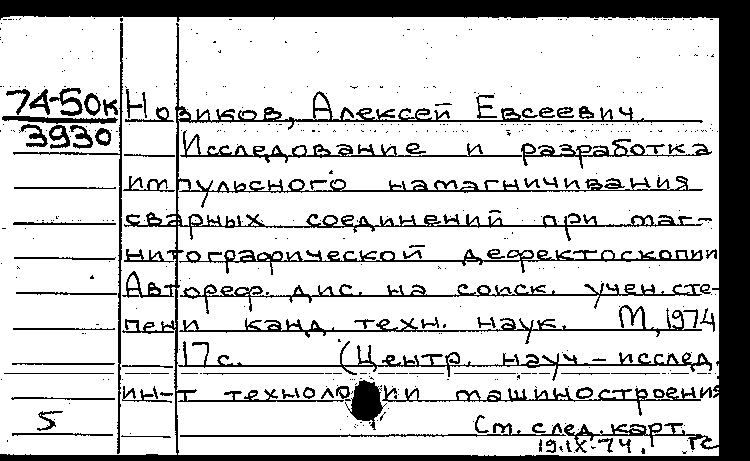 74-50к Новиков, Алексей Евсеевич
3930
Исследование и разработка
импульсного намагничивания
сварных соединений при маг-
нитографической дефектоскопии
Автореф. дис. на соиск. учен. сте-
пени канд. техн. наук. М, 1974
17 с. (Центр. науч.-исслед.
ин-т технологии машиностроения
5 См. след. карт.
19.IX-74. ГС